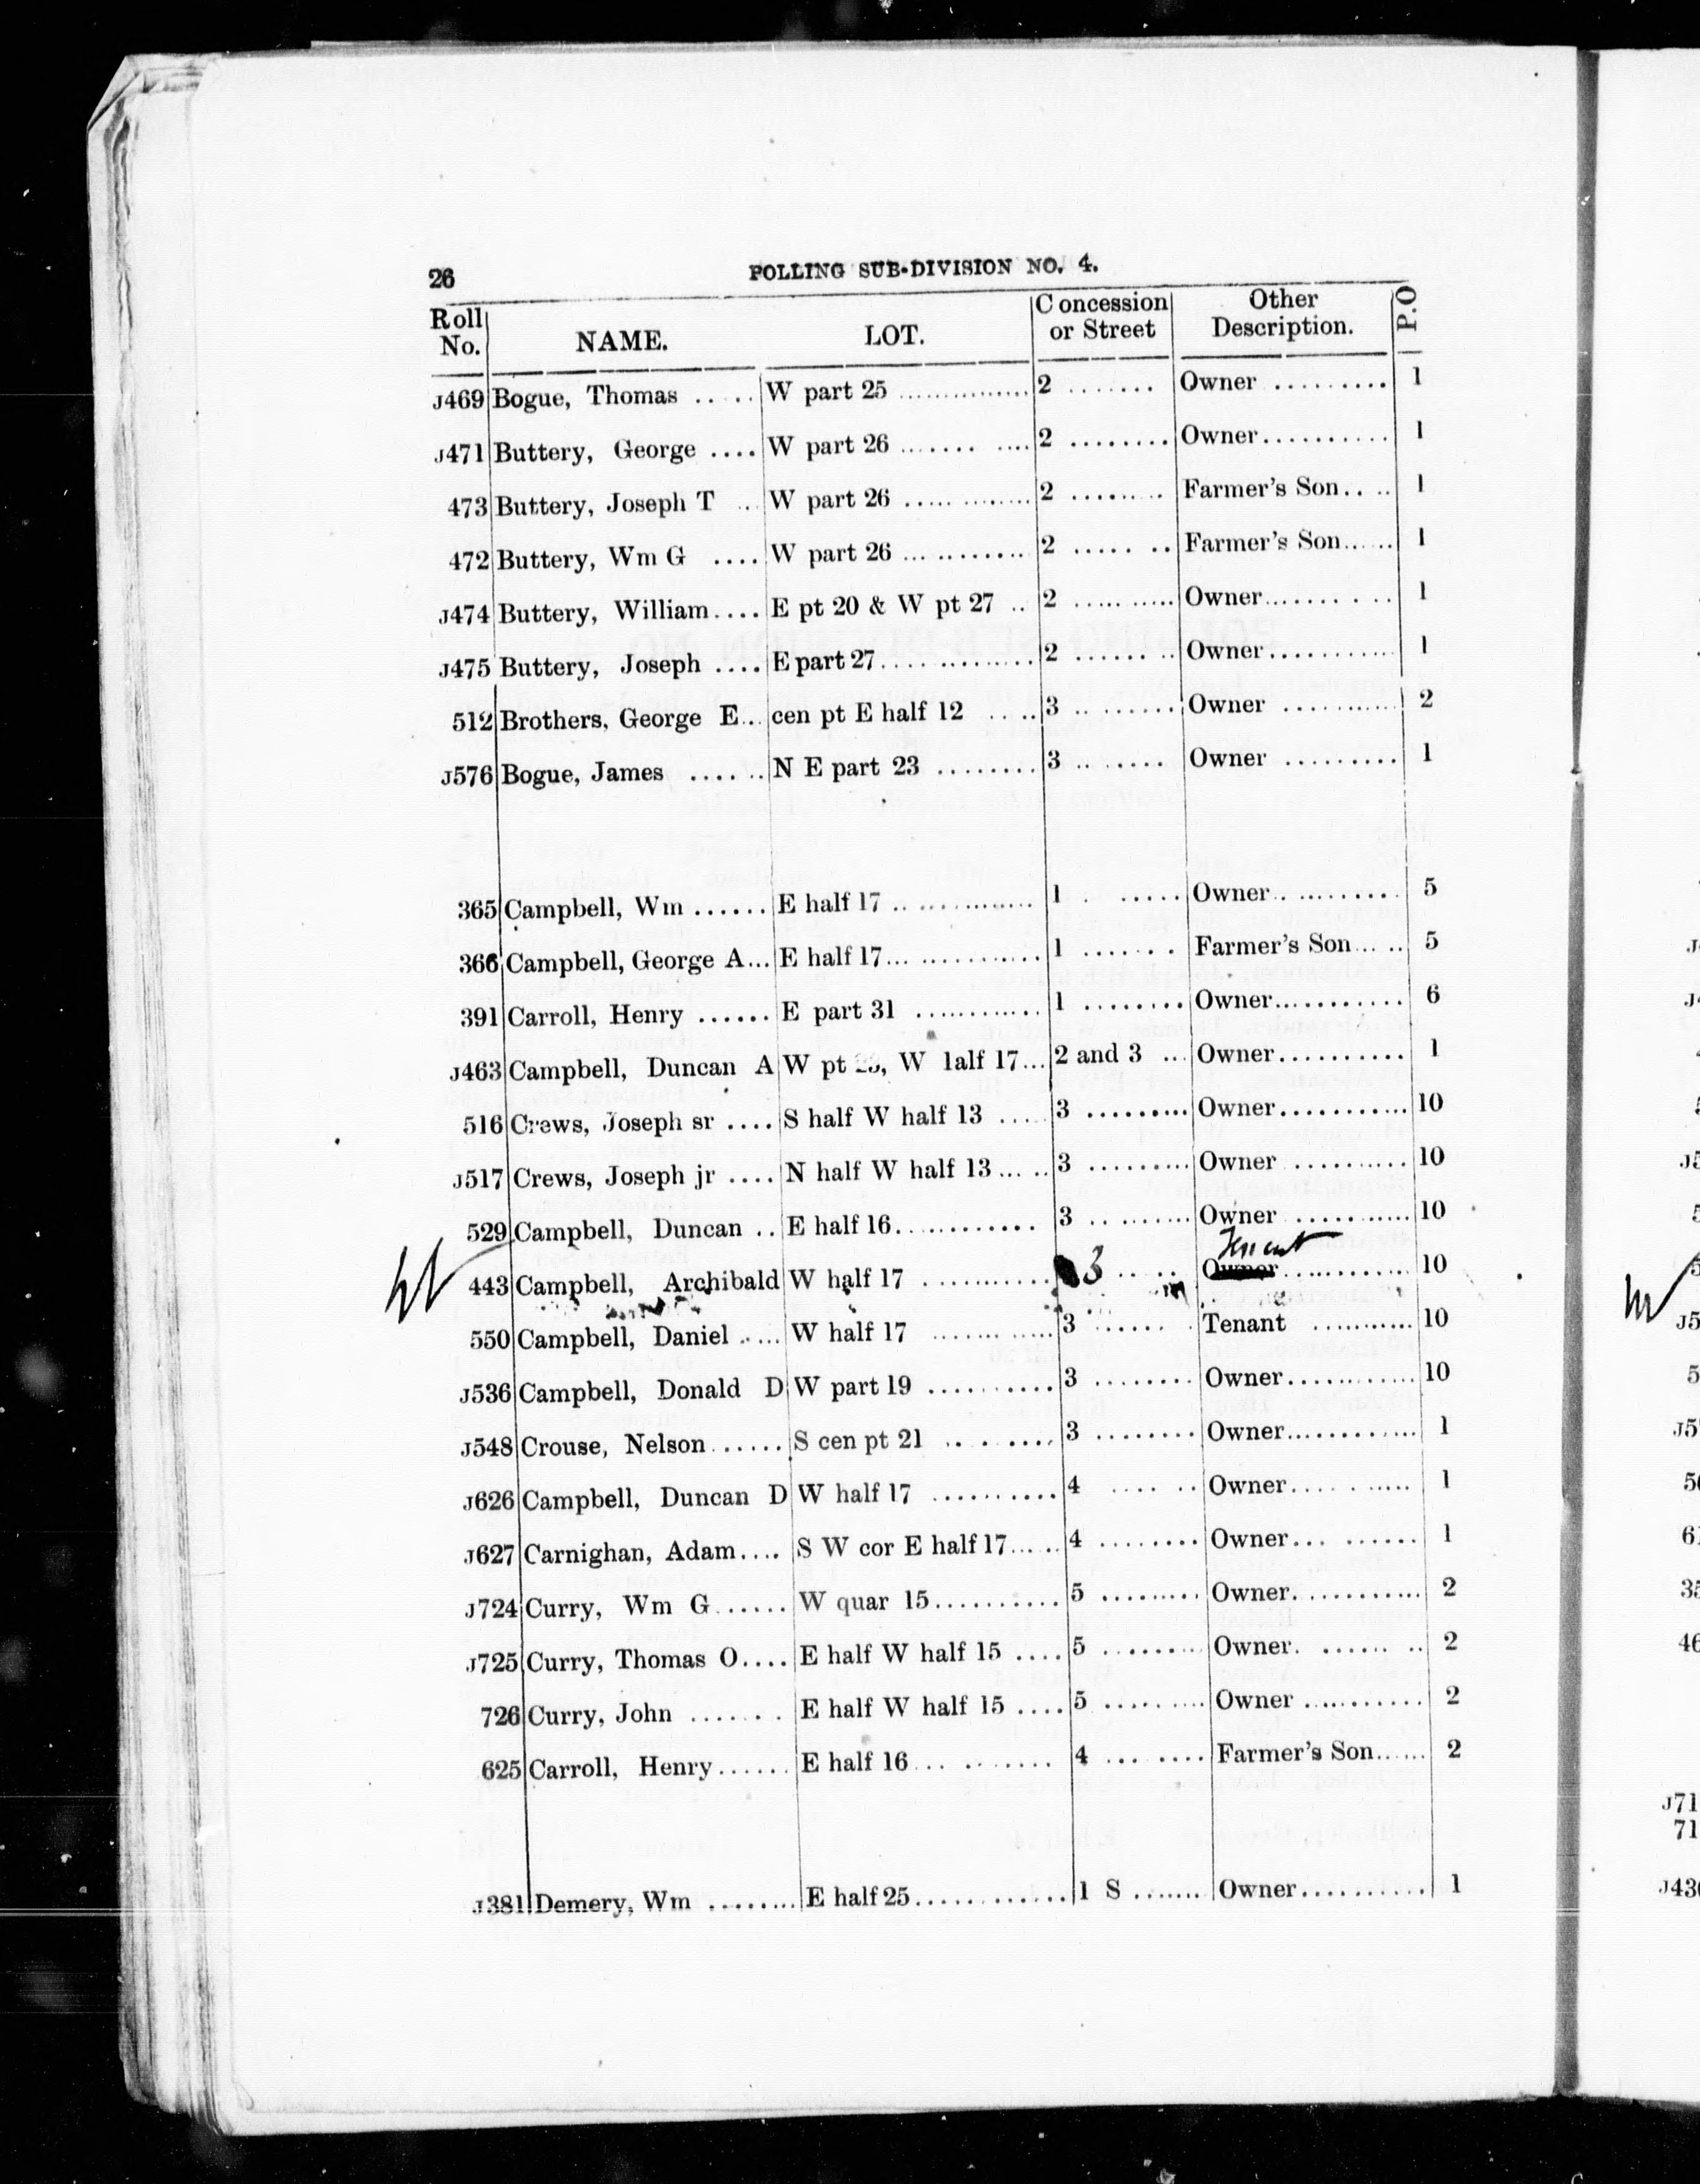 26 POLLING SUB-DIVISION NO. 4.
Roll No. NAME. LOT. Concession or Street Other Description. P.O
J469 Bogue, Thomas ..... W part 25 ............... 2 ....... Owner ......... 1
J471 Buttery, George .... W part 26 ....... .... 2 ........ Owner.......... 1
473 Buttery, Joseph T .. W part 26 ..... ........ 2 ........ Farmer's Son.. .. 1
472 Buttery, Wm G .... W part 26 ... ......... 2 ..... .. Farmer's Son...... 1
J474 Buttery, William.... E pt 20 & W pt 27 .. 2 .......... Owner.......... 1
J475 Buttery, Joseph .... E part 27............. 2 ......... Owner........... 1
512 Brothers, George E.. cen pt E half 12 .... 3 ......... Owner .......... 2
J576 Bogue, James ...... N E part 23 ........ 3 ........ Owner ......... 1
365 Campbell, Wm ...... E half 17 ............. 1 . ..... Owner........... 5
366 Campbell, George A... E half 17............. 1 ....... Farmer's Son..... 5
391 Carroll, Henry ...... E part 31 ........... 1 ........ Owner........... 6
J463 Campbell, Duncan A W pt , W 1alf 17... 2 and 3 ... Owner.......... 1
516 Crews, Joseph sr .... S half W half 13 .... 3 ......... Owner........... 10
J517 Crews, Joseph jr .... N half W half 13..... 3 ......... Owner .......... 10
529 Campbell, Duncan .. E half 16............ 3 ......... Owner .......... 10
Tenant
443 Campbell, Archibald W half 17 ........... 3 ..... Owner........... 10
550 Campbell, Daniel ..... W half 17 ........... 3 ...... Tenant .......... 10
J536 Campbell, Donald D W part 19 .......... 3 ........ Owner........... 10
J548 Crouse, Nelson...... S cen pt 21 ........ 3 ........ Owner........... 1
J626 Campbell, Duncan D W half 17 .......... 4 .... .. Owner.... ..... 1
J627 Carnighan, Adam.... S W cor E half 17..... 4 ........ Owner... ...... 1
J724 Curry, Wm G...... W quar 15.......... 5 ......... Owner........... 2
J725 Curry, Thomas O.... E half W half 15 .... 5 ......... Owner. ...... .. 2
726 Curry, John ....... E half W half 15 .... 5 ......... Owner .......... 2
625 Carroll, Henry...... E half 16... ........ 4 ... .... Farmer's Son...... 2
J381 Demery, Wm ........ E half 25............ 1 S ....... Owner.......... 1